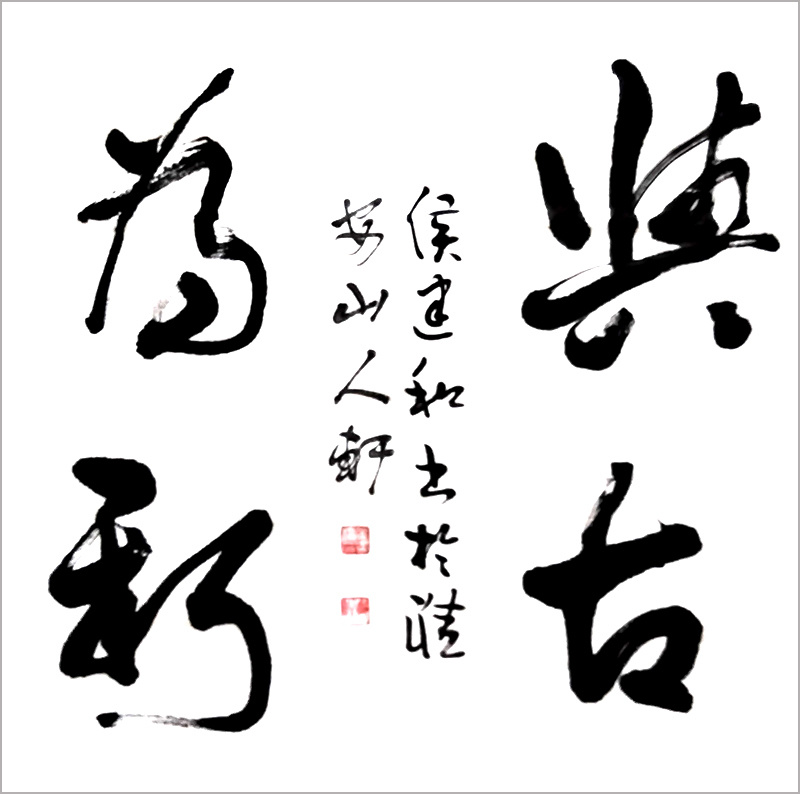 與古
為新
侯建和书於
安山人軒